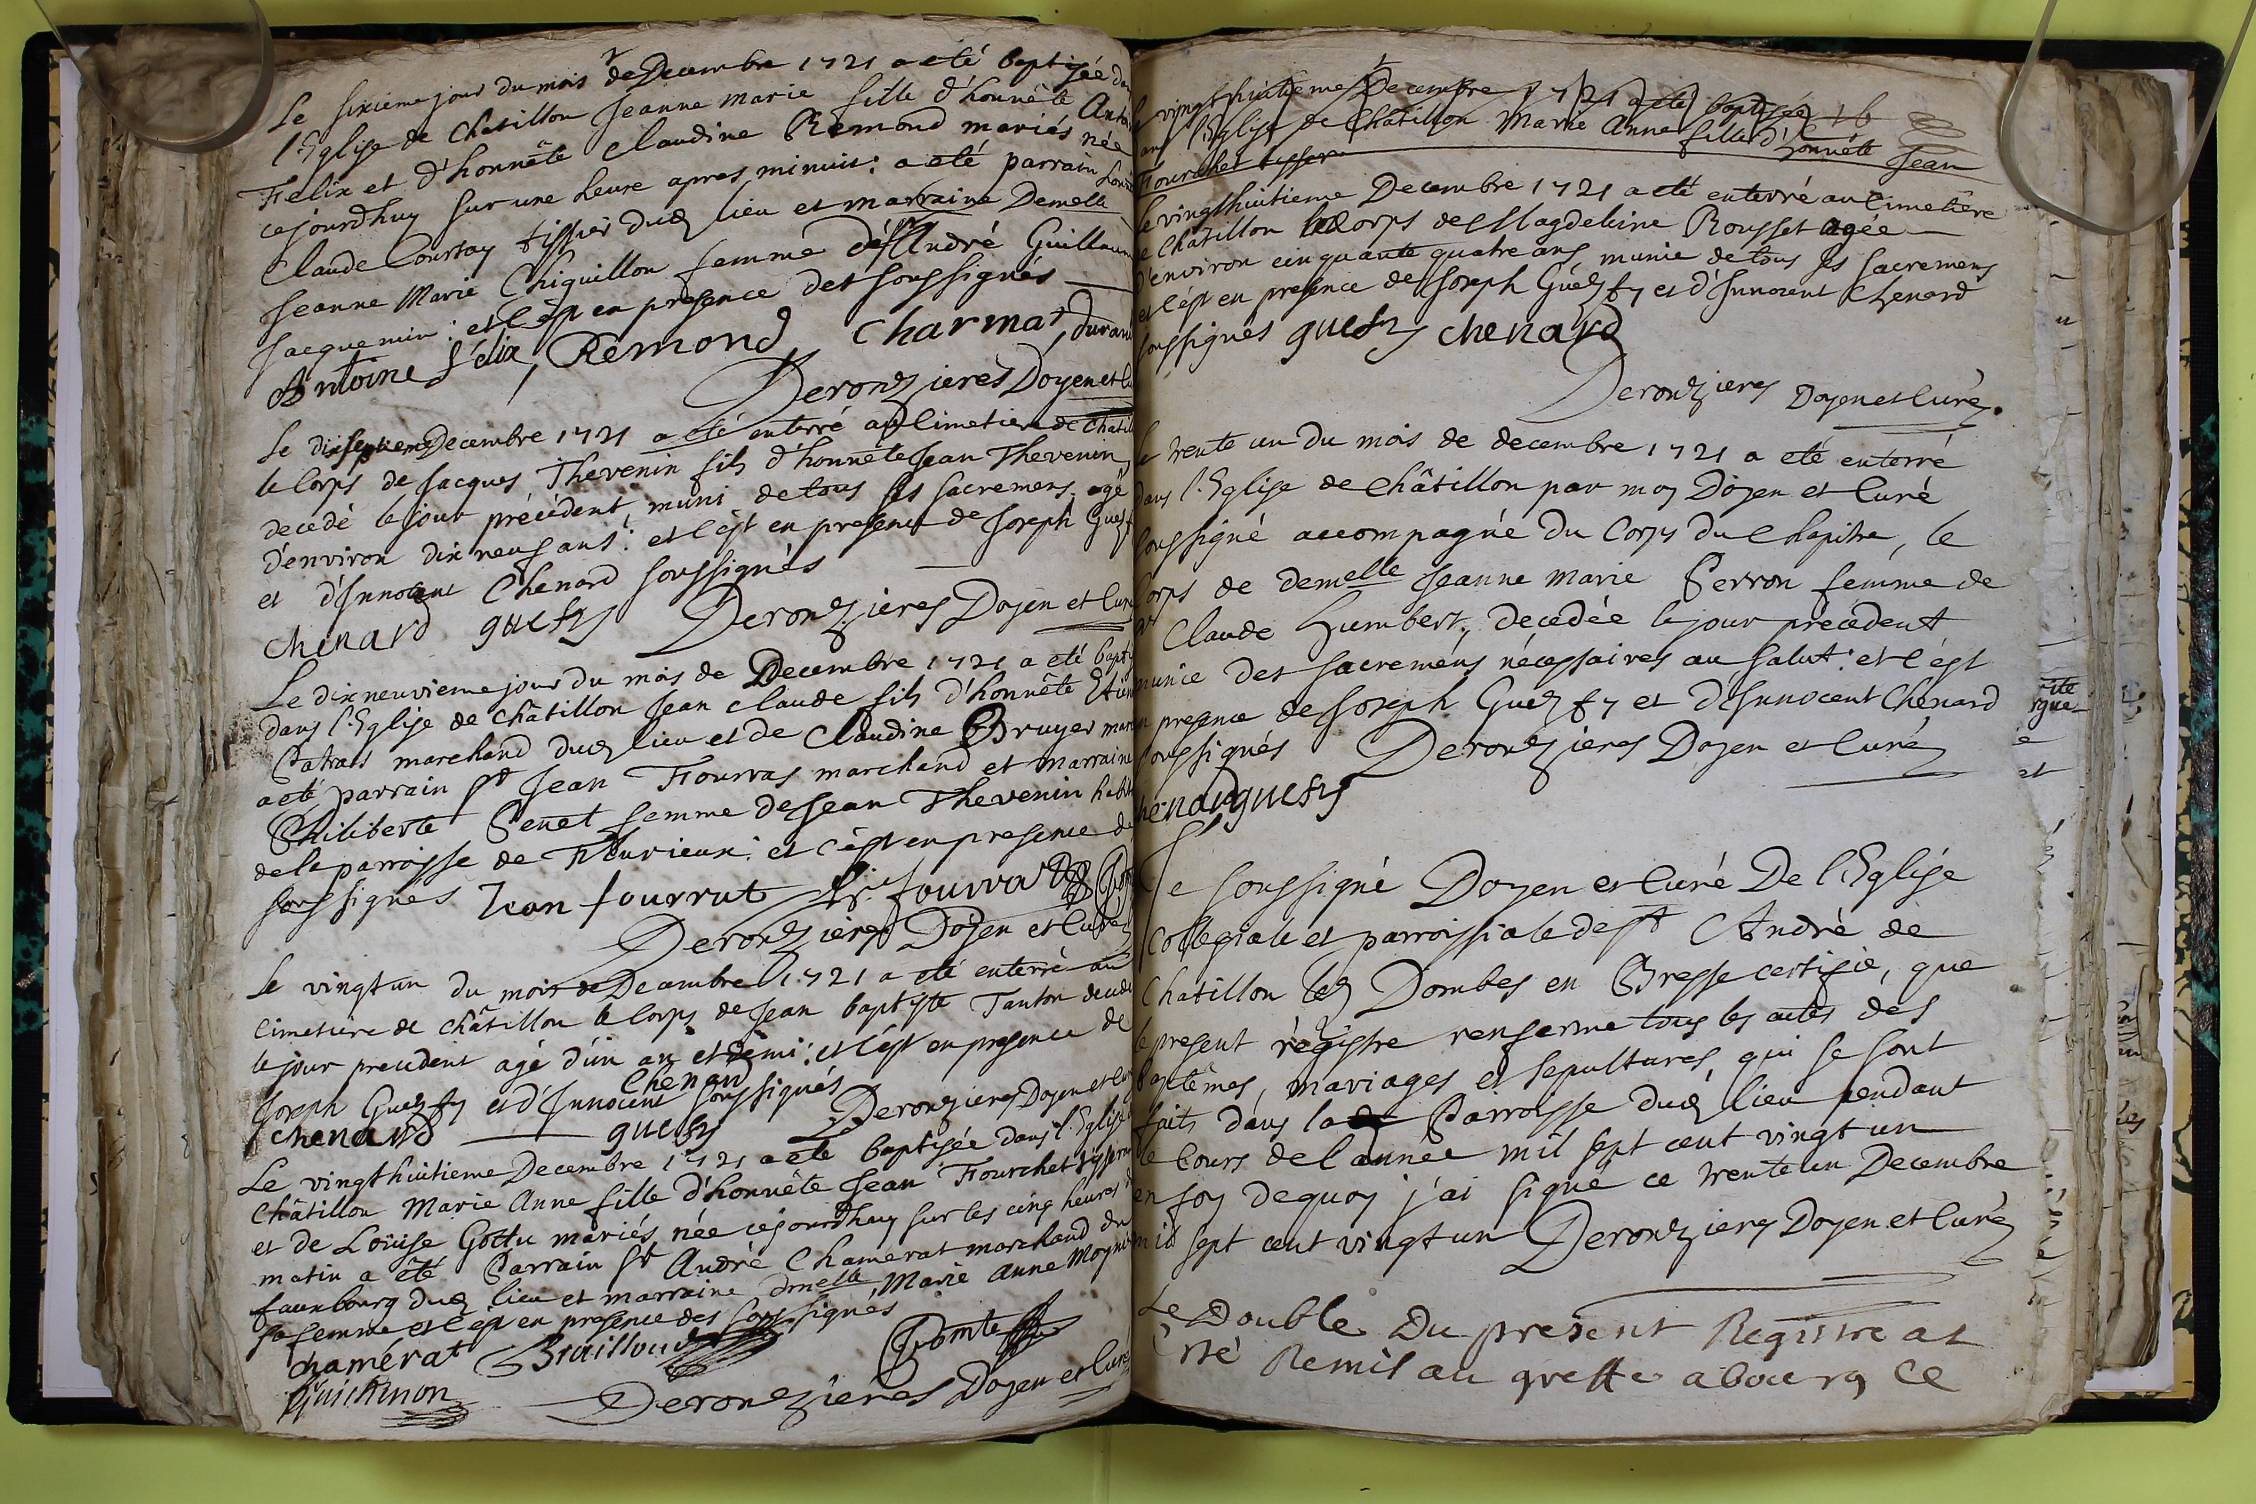 Le sixieme jour du mois de Decembre 1721 a eté baptisée
l'Eglise de Chatillon Jeanne Marie fille d'honnête
Felix et d'honnête Claudine Remond mariés née
cejourdhuy sur une heure apres minuit: a eté parrain
Claude Courtoy tissier dud lieu et marraine Demelle
Jeanne Marie Chiquillon femme de Sr André
Jacquemin: et c'est en presence des soussignés
Antoine Felix, Remond Charmat,
Deronzieres Doyen et
Le dixseptieme Decembre 1721 a eté enterré au Cimetiere de
le Corps de Jacques Thevenin fils d'honnête Jean Thevenin
decedé le jour précédent, muni de tous ses sacremens, agé
d'environ dix neuf ans: et c'est en presence de Joseph
et d'Innocent Chenard soussignés
chenard guesty Deronzieres Doyen et
Le dix neuvieme jour du mois de Decembre 1721 a eté
dans l'Eglise de Châtillon Jean Claude fils d'honnête
Patras marchand dud lieu et de Claudine Bruyer
a eté parrain Sr Jean Fourras marchand et marraine
Philiberte Penet femme de Jean Thevenin
de la parroisse de Fleurieux: et c'est en presence
soussignés Jean fourrat
Deronzieres Doyen et Curé
Le vingt un du mois de Decembre 1721 a eté enterré au
Cimetiere de Châtillon le Corps de Jean baptiste Tanton
le jour precedent agé d'un an et demi: et c'est en presence de
Chenard
Joseph Guesty et d'Innocent soussignés
chenard guesty Deronzieres Doyen et
Le vingt huitieme Decembre 1721 a eté baptisée dans l'Eglise
Châtillon Marie Anne fille d'honnête Jean Fourchet
et de Loüise Gottu mariés, née cejourdhuy sur les cinq heures
matin a êté Parrain Sr André Chamerat marchand du
fauxbourg dud lieu et marraine dmelle Marie Anne
sa femme et c'est en presence des soussignés
chamérat Brailloud Comte
Guichenon Deronzieres Doyen et Curé
vingt huitieme Decembre 1721 a eté baptisée
l'Eglise de Châtillon Marie Anne fille d'honnête Jean
Fourchet
Le vingthuitieme Decembre 1721 a eté enterré au Cimetiere
de Chatillon le Corps de Magdeleine Rousset agée
d'environ cinquante quatre ans, munie de tous ses sacremens
et c'est en presence de Joseph Guesty et d'Innocent Chenard
soussignés guesty chenard
Deronzieres Doyen et Curé.
Le trente un du mois de decembre 1721 a eté enterré
dans l'Eglise de Châtillon par moy Doyen et Curé
soussigné accompagné du Corps du Chapitre, le
Corps de demelle Jeanne Marie Perron femme de
Sr Claude Humbert, decedée le jour précedent
munie des sacremens nécessaires au salut: et c'est
en presence de Joseph Guesty et d'Innocent Chenard
soussignés Deronzieres Doyen et Curé
chenard guesty
Je soussigné Doyen et Curé De l'Eglise
Collegiale et parroissiale de St André de
Châtillon lez Dombes en Bresse certifie, que
le present régistre renferme tous les actes des
baptêmes, mariages et sepultures, qui se sont
faits dans la Parroisse dud lieu pendant
le Cours de l'année mil sept cent vingt un
en foy dequoy j'ai signé ce trente un Decembre
mil sept cent vingt un Deronzieres Doyen et Curé
Le Double Du present Registre at
été Remis au greffe a bourg Ce